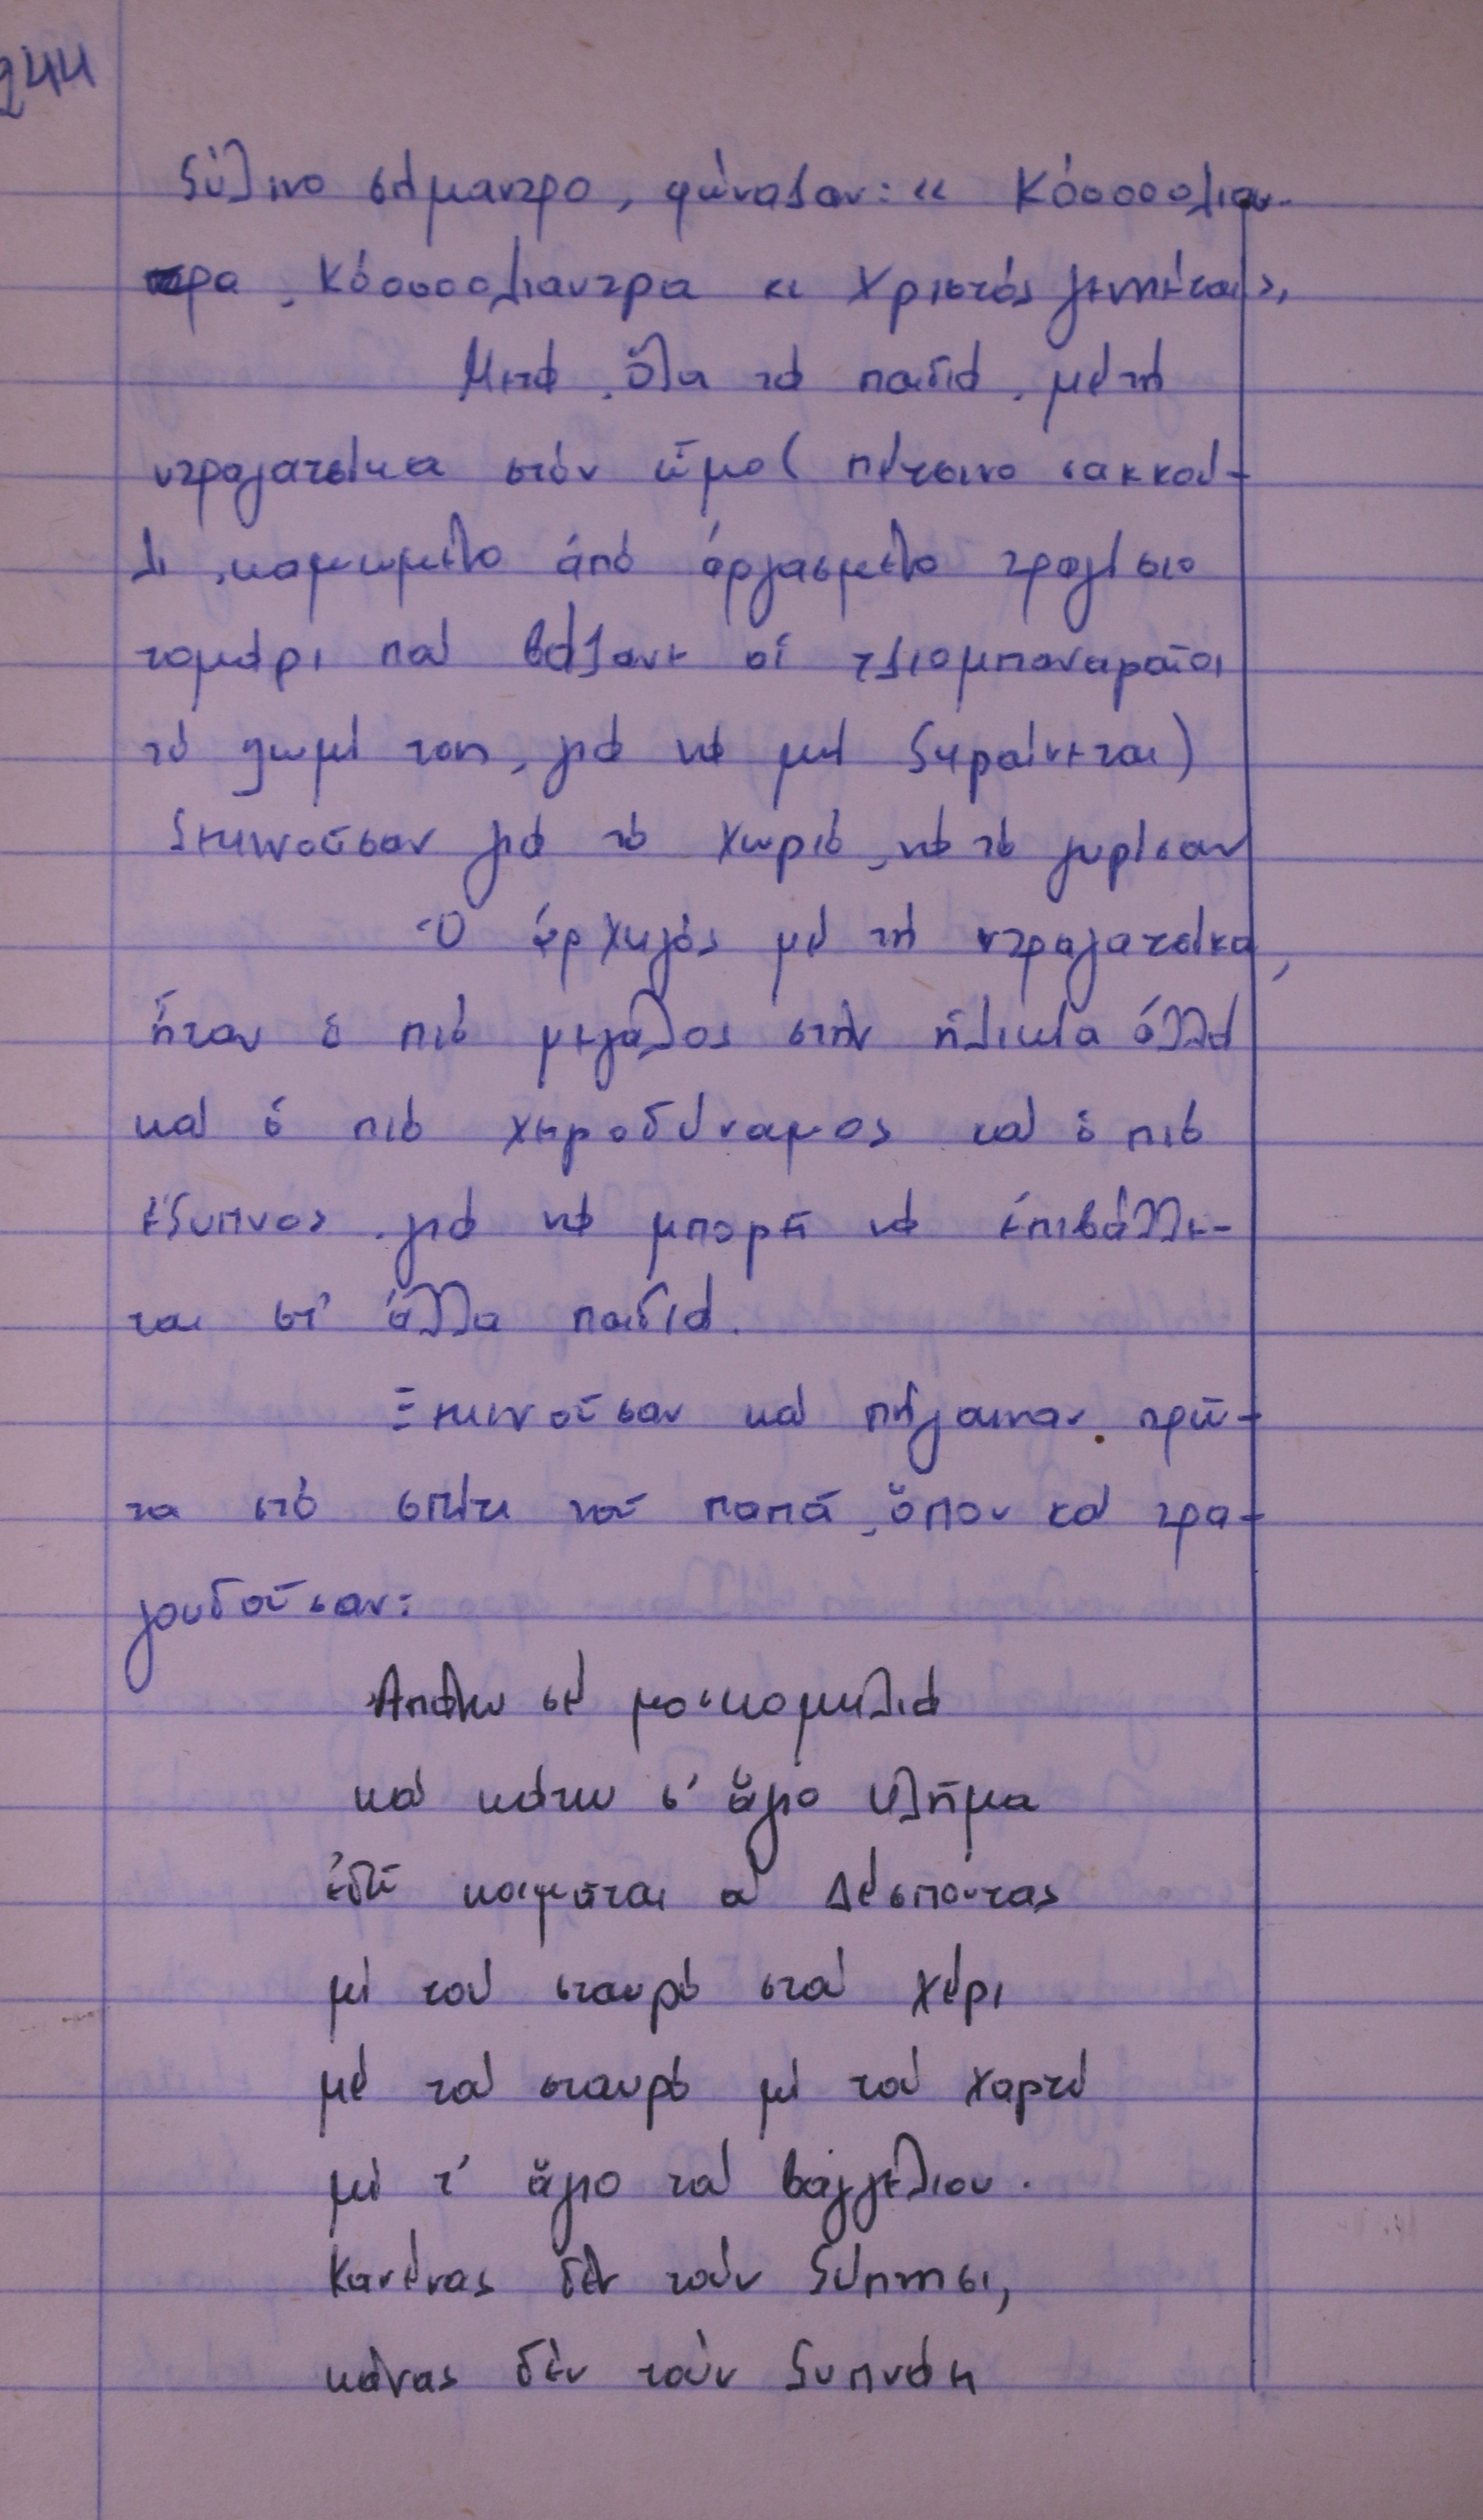 244
ξύλινο σήμαντρο, φώναζαν: «Κόοοοολιαν-
τρα, Κόοοοολιαντρα κι Χριστός γεννιέται»,
Μετά, ὅλα τά παιδιά, μέ τή
ντραγατσίκα στόν ὦμο (πέτσινο σακκού-
λι, καμωμένο ἀπό ἀργασμένο τραγίσιο
τομάρι πού βάζανε οἱ τσιομπαναραῖοι
τό ψωμί τους, γιά νά μή ξηραίνεται)
ξεκινοῦσαν γιά τό χωριό, νά τό γυρίσουν
Ὁ ἀρχηγός μέ τή ντραγατσίκα,
ἦταν ὁ πιό μεγάλος στήν ἡλικία ἀλλά
καί ὁ πιό χεροδύναμος καί ὁ πιό
ἔξυπνος, γιά νά μπορῆ νά ἐπιβάλλε-
ται στ' ἄλλα παιδιά.
Ξεκινοῦσαν καί πήγαιναν πρῶ-
τα στό σπίτι τοῦ παπᾶ, ὅπου καί τρα-
γουδοῦσαν:
Ἀπάνω σέ μοσκομηλιά
καί κάτω σ' ἅγιο κλῆμα
ἐδῶ κοιμᾶται οὐ Δέσπουτας
μί τού σταυρό στού χέρι
μέ τού σταυρό μί τού χαρτί
μί τ' ἅγιο τού βαγγέλιου.
Κανένας δέν τούν ξύπνησι,
κάνας δέν τούν ξυπνάει